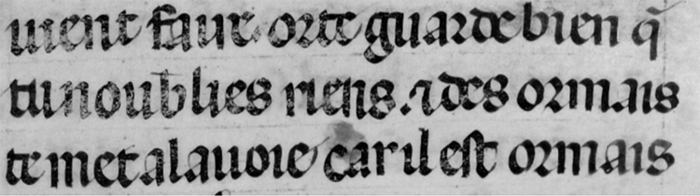 uient faire orte guarde bien q̃
tu noublies riens. ⁊ des ormais
te met a la uoie car il est ormais